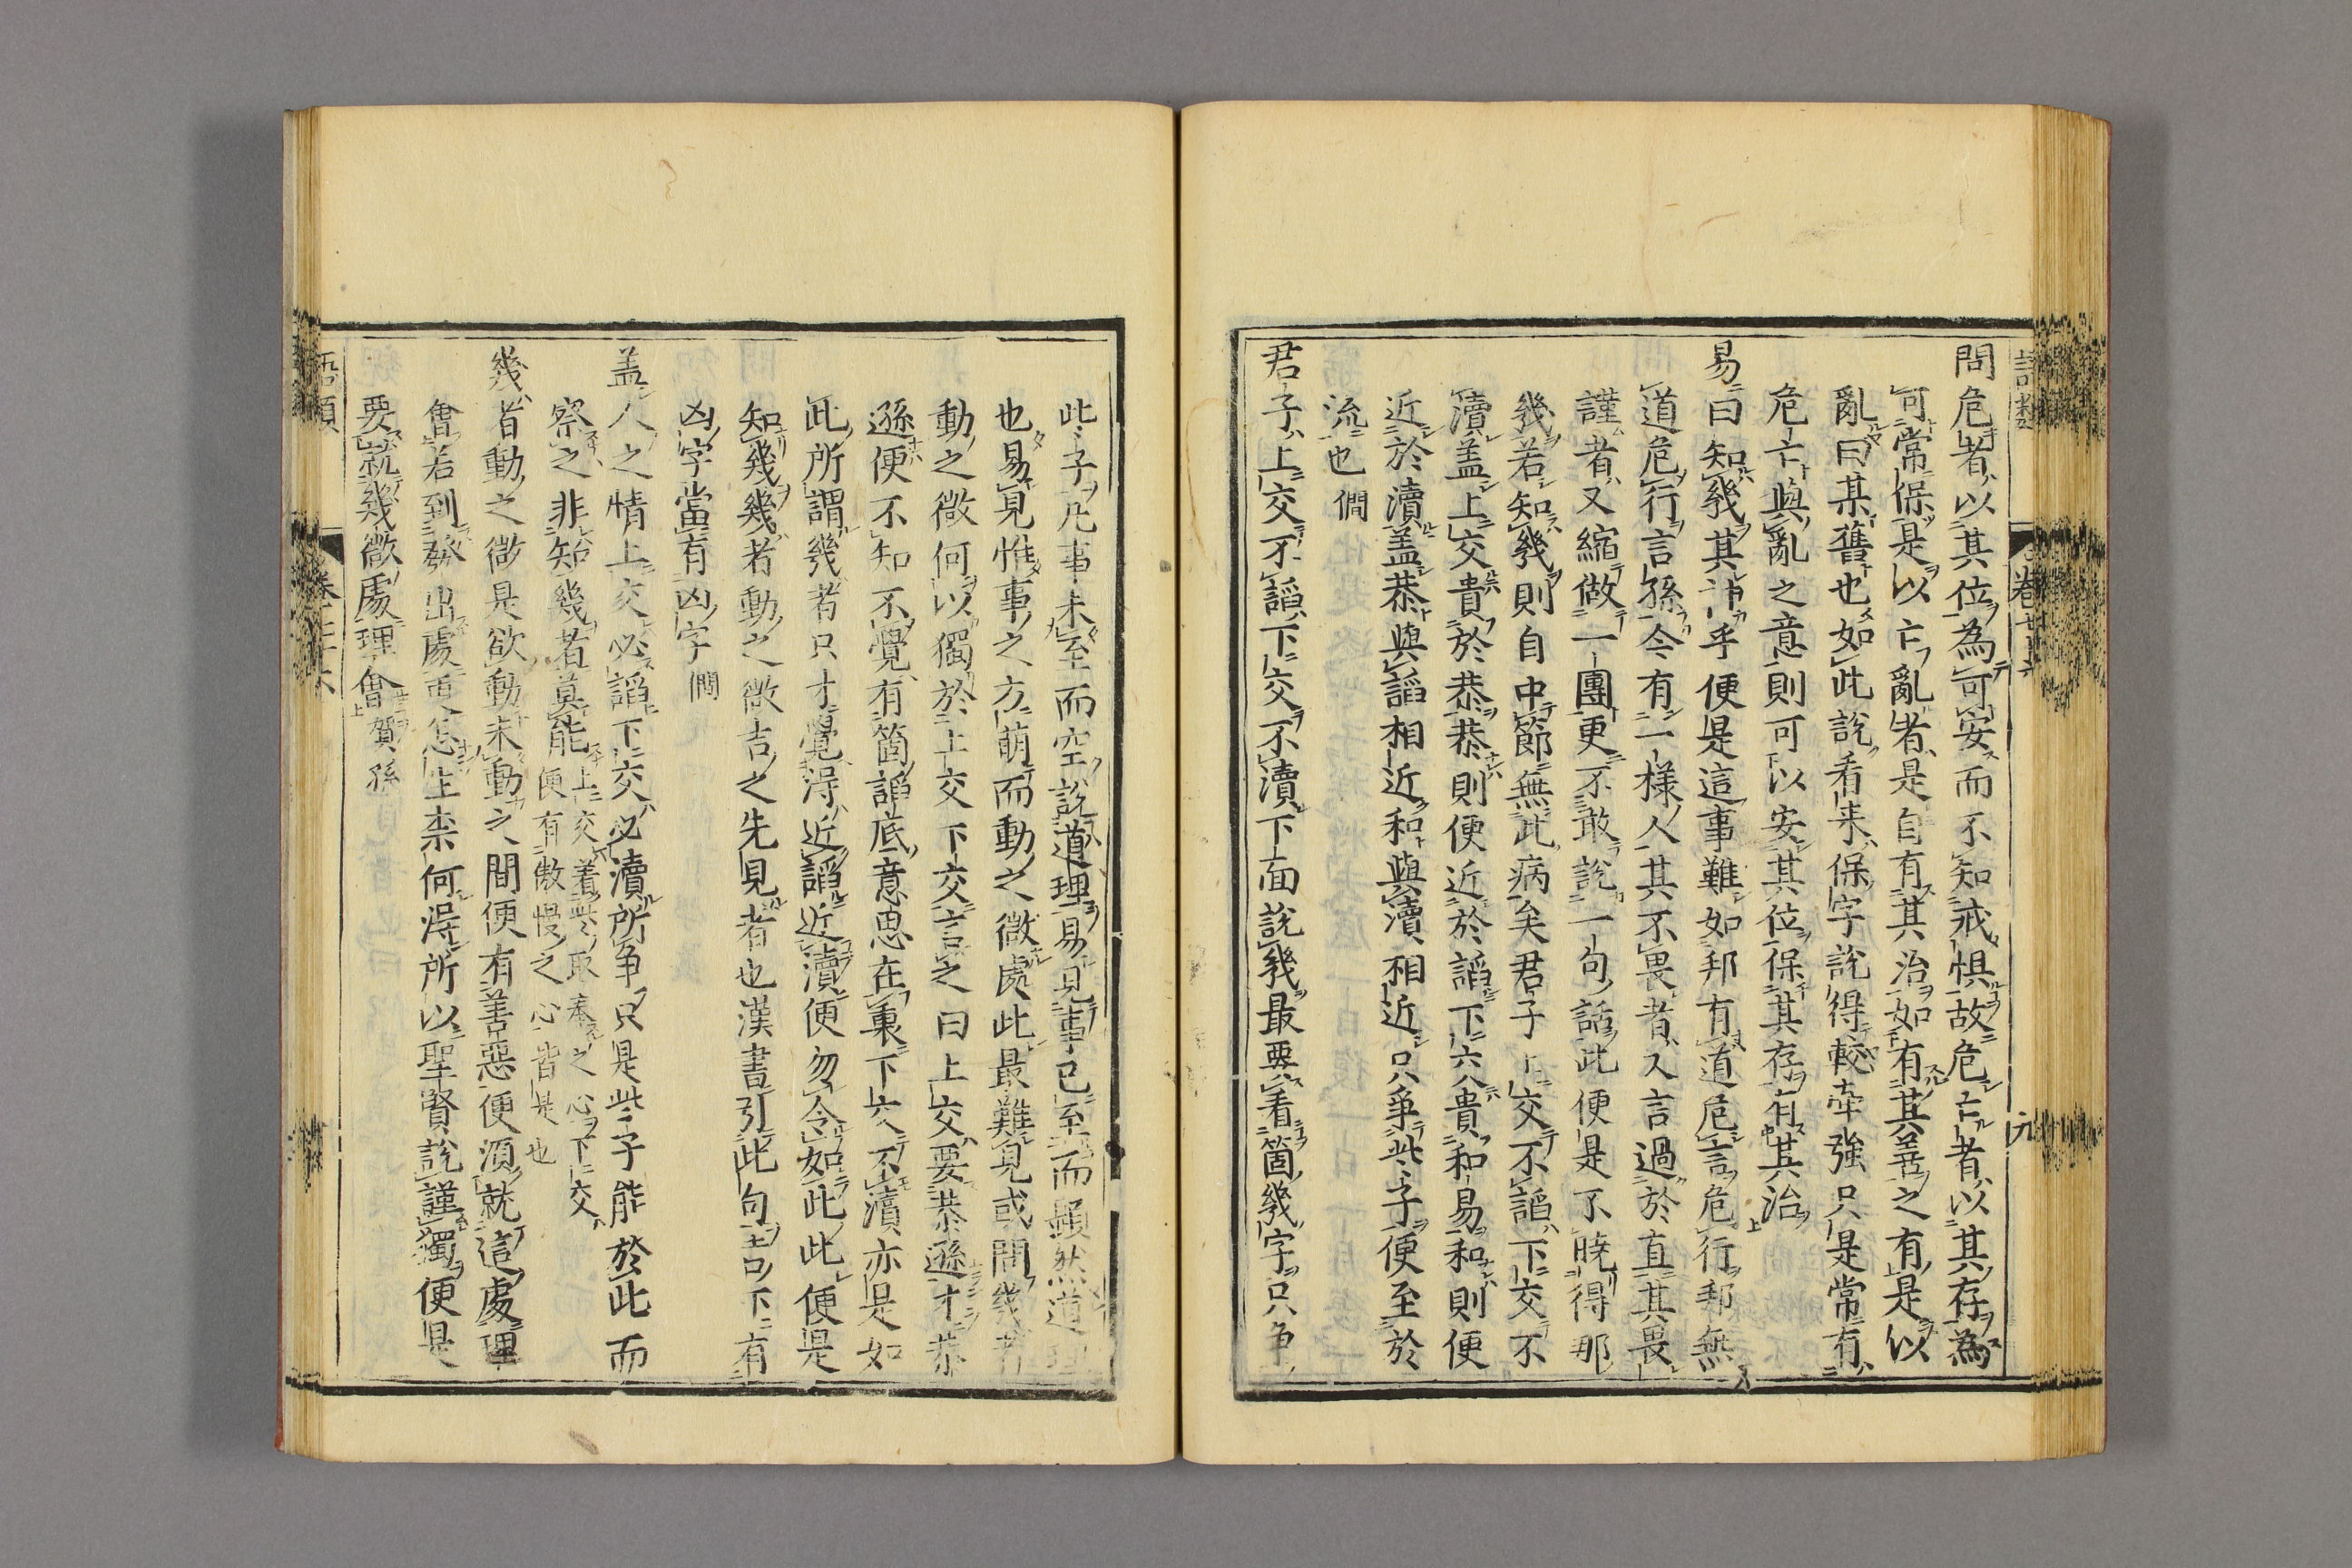 問危者以其位為可安而不知戒懼故危亡者以其存為
可常保是以亡亂者是自有其治如有其善之有是以
亂曰某舊也如此說看来保字說得較牽強只是常有
危亡與亂之意則可以安其位保其存有其治
易曰知幾其神乎便是這事難如邦有道危言危行邦無
道危行言孫今有一様人其不畏者又言過於直其畏
謹者又縮做一團更不敢說一句話此便是不曉得那
幾若知幾則自中節無此病矣君子上交不諂下交不
瀆盖上交貴於恭恭則便近於諂下交貴和易和則便
近於瀆盖恭與諂相近和與瀆相近只爭些子便至於
流也 僩
君子上交不諂下交不瀆下面說幾最要看箇幾字只争
此子凡事未至而空說道理易見事已至而顯然道理
也易見惟事之方萌而動之微處此最難見或問幾者
動之微何以獨於上交下交言之曰上交要恭遜才恭
遜便不知不覺有箇諂底意思在裏下交不瀆亦是如
此所謂幾者只才覺得近諂近瀆便勿令如此此便是
知幾幾者動之微吉之先見者也漢書引此句吉下有
凶字當有凶字 僩
盖人之情上交必諂下交必瀆所争只是些子能於此而
察之非知幾者莫能 上交着些取奉之心下交便有傲慢之心皆是也
幾者動之微是欲動未動之間便有善惡便須就這處理
會若到發出處更怎生柰何得所以聖賢說謹獨便是
要就幾微處理會 賀孫
語類 卷七十六 九
語類 卷七十六